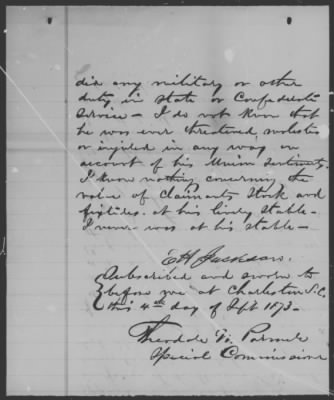 did any military or other
duty in State or Confederate
service — I do not know that
he was ever threatened, molested
or injured in any way on
account of his Union sentiments.
I know nothing concerning the
value of claimants Stock and
fixtures at his livery stable —
I never was at his stable —
E H Jackson.
Subscribed and sworn to
before me at Charleston S.C.
this 4th day of Sept 1873 —
Theodore W. Parmele
Special Commissioner